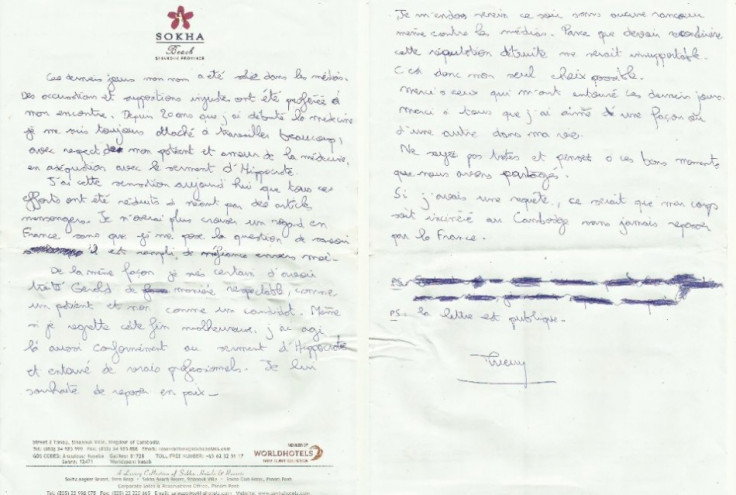 SOKHA
Beach
SIHANOUKVILLE
Ces derniers jours mon nom a été sali dans les médias.
Des accusations et suppositions injustes ont été proférées à
mon encontre. Depuis 20 ans que j'ai débuté la médecine
je me suis toujours attaché à travailler beaucoup,
avec respect de mon patient et amour de la médecine,
en adéquation avec le serment d'Hippocrate.
J'ai cette sensation aujourd'hui que tous ces
efforts ont été réduits à néant par des articles
mensongers. Je n'aurai plus croiser un regard en
France sans que je me pose la question de savoir
il est rempli de méfiance envers moi.
De la même façon je suis certain d'avoir
traité Gérald de manière respectable, comme
un patient et non comme un candidat. Même
si je regrette cette fin malheureuse, j'ai agi
là aussi conformément au serment d'Hippocrate
et entouré de vrais professionnels. Je lui
souhaite de reposer en paix -
Street 2 Thnou, Sihanouk Ville, Kingdom of Cambodia
MEMBER OF
WORLDHOTELS
A Luxury Collection of Sokha Hotels & Resorts
Je m'endors serein ce soir sans aucune rancoeur
même contre les médias. Parce que devoir reconstruire
cette réputation détruite me serait insupportable.
C'est donc mon seul choix possible.
Merci à ceux qui m'ont entouré ces derniers jours.
Merci à tous que j'ai aimé d'une façon ou
d'une autre dans ma vie.
Ne soyez pas tristes et pensez à ces bons moments
que nous avons partagés.
Si j'avais une requête, ce serait que mon corps
soit incinéré au Cambodge sans jamais repasser
par la France.
PS
PS. la lettre est publique -